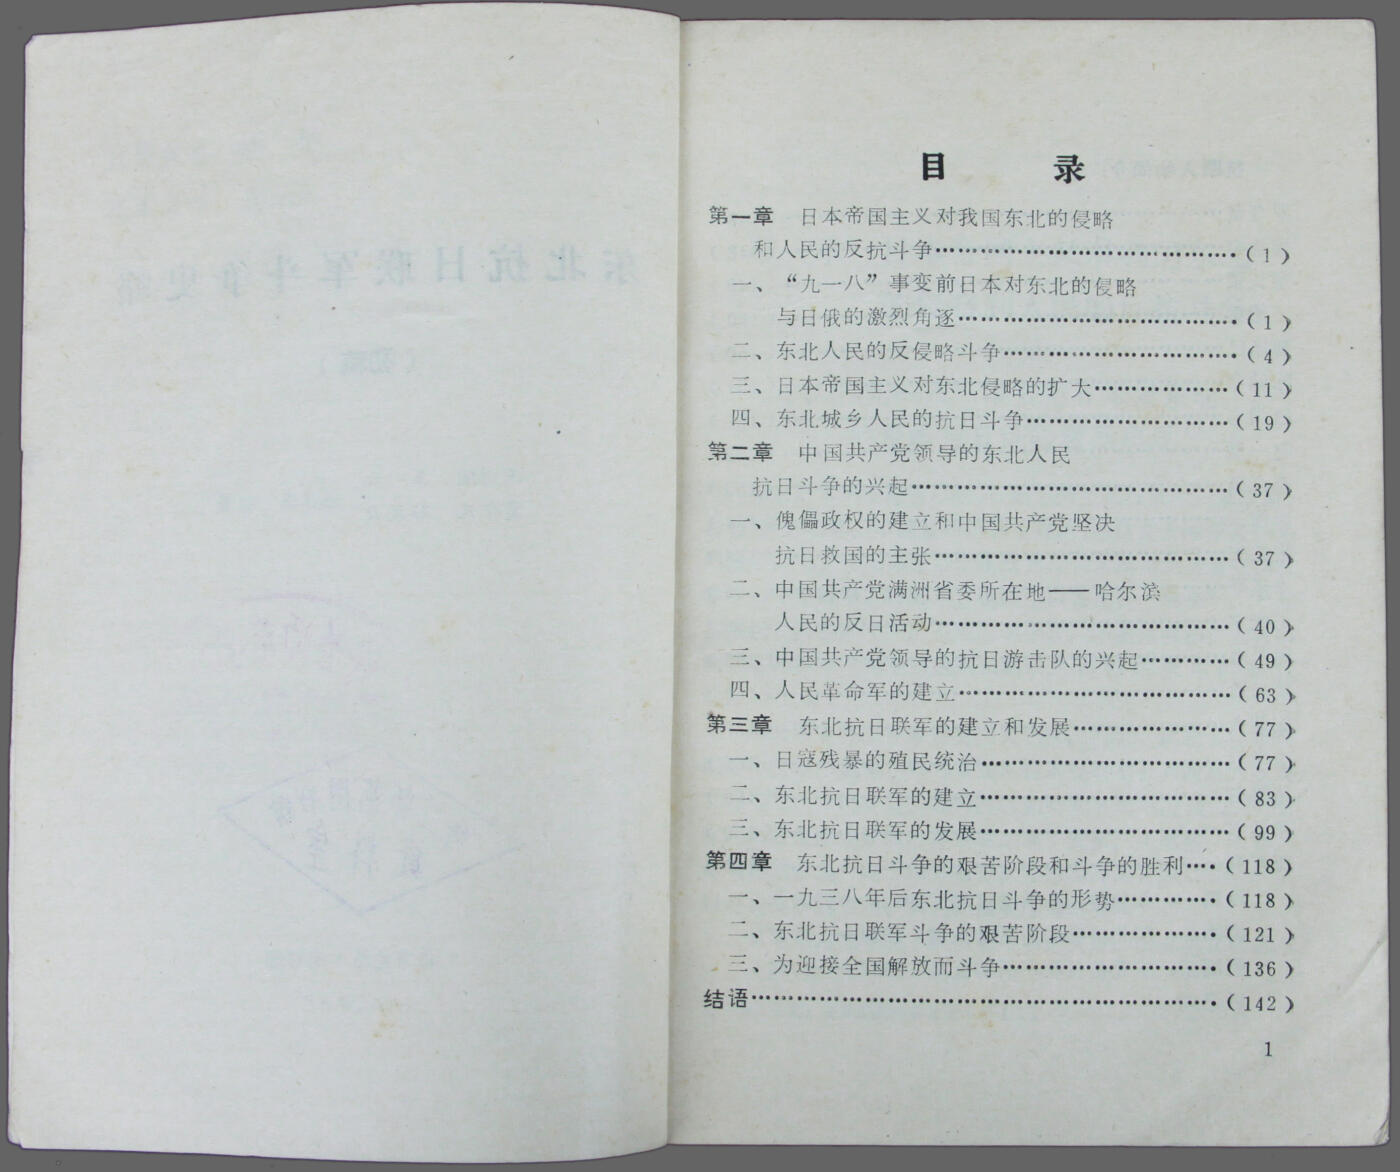 目 录
第一章 日本帝国主义对我国东北的侵略
和人民的反抗斗争……………………………………(1)
一、“九一八”事变前日本对东北的侵略
与日俄的激烈角逐…………………………………(1)
二、东北人民的反侵略斗争……………………………(4)
三、日本帝国主义对东北侵略的扩大………………(11)
四、东北城乡人民的抗日斗争………………………(19)
第二章 中国共产党领导的东北人民
抗日斗争的兴起………………………………………(37)
一、傀儡政权的建立和中国共产党坚决
抗日救国的主张……………………………………(37)
二、中国共产党满洲省委所在地——哈尔滨
人民的反日活动……………………………………(40)
三、中国共产党领导的抗日游击队的兴起…………(49)
四、人民革命军的建立………………………………(63)
第三章 东北抗日联军的建立和发展…………………(77)
一、日寇残暴的殖民统治……………………………(77)
二、东北抗日联军的建立……………………………(83)
三、东北抗日联军的发展……………………………(99)
第四章 东北抗日斗争的艰苦阶段和斗争的胜利…·(118)
一、一九三八年后东北抗日斗争的形势…………·(118)
二、东北抗日联军斗争的艰苦阶段………………·(121)
三、为迎接全国解放而斗争………………………·(136)
结语……………………………………………………·(142)
1
东北抗日联军斗争史略
（初稿）